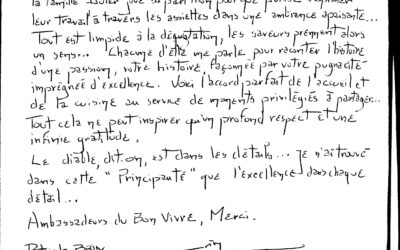 la famille
leur travail à travers les assiettes dans une ambiance apaisante...
Tout est limpide à la dégustation, les saveurs prennent alors
un sens... Chacune d'elle me parle pour raconter l'histoire
d'une passion, votre histoire, façonnée par votre pugnacité
imprégnée d'excellence. Voici l'accord parfait de l'accueil et
de la cuisine au service de moments privilégiés à partager...
Tout cela ne peut inspirer qu'un profond respect et une
infinie gratitude.
Le diable, dit-on, est dans les détails... Je n'ai trouvé
dans cette "Principauté" que l'excellence dans chaque
détail...
Ambassadeurs du Bon Vivre, Merci.